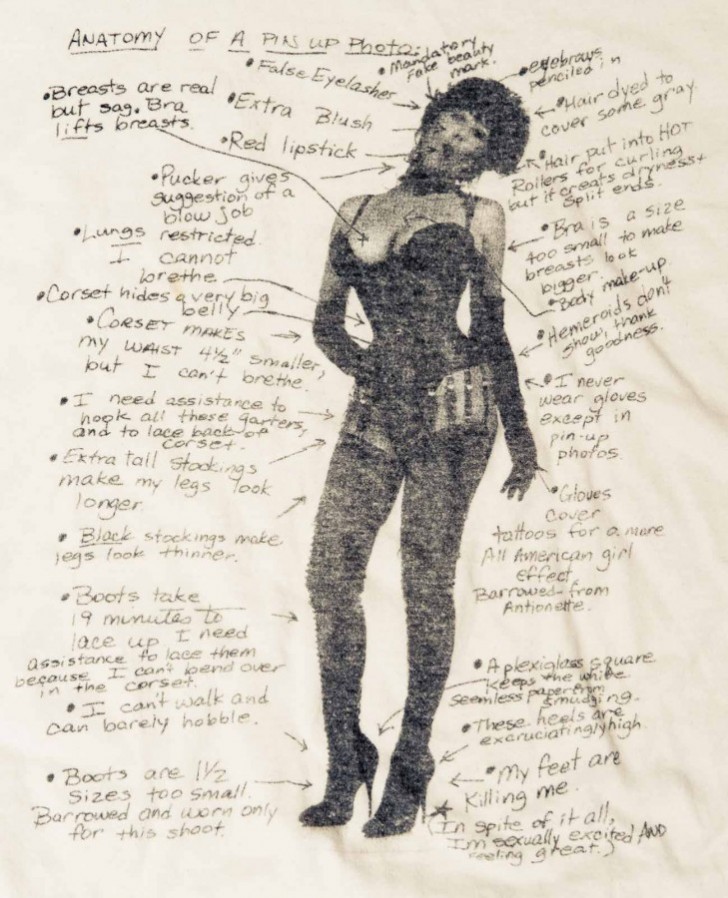 ANATOMY OF A PIN UP Photo:
• Breasts are real
but sag. Bra
lifts breasts.
• False Eyelashes
• Mandatory
fake beauty
mark.
• eyebrows
penciled in
• Extra Blush
• Red lipstick
• Hair dyed to
cover some gray.
• Pucker gives
suggestion of a
blow job
• Hair put into HOT
Rollers for curling
but it creats dryness +
Split ends.
• Lungs restricted.
I cannot
brethe
• Bra is a size
too small to make
breasts look
bigger.
• Corset hides a very big
belly
• Body make-up
• CORSET MAKES
my WAIST 4½" smaller,
but I can't brethe.
• Hemeroids don't
show, thank
goodness.
• I need assistance to
hook all these garters,
and to lace back of
corset.
• I never
wear gloves
except in
pin-up
photos.
• Extra tall stockings
make my legs look
longer
• Gloves
cover
tattoos for a more
All American girl
effect.
Barrowed from
Antionette.
• Black stockings make
legs look thinner.
• Boots take
19 minutes to
lace up I need
assistance to lace them
because I can't bend over
in the corset.
• A plexiglass square
keeps the white
seamless paper from
smudging.
• I can't walk and
can barely hobble.
• These heels are
excruciatingly high.
• Boots are 1½
sizes too small.
Barrowed and worn only
for this shoot.
• My feet are
Killing me.
(In spite of it all,
I'm sexually excited AND
feeling great.)